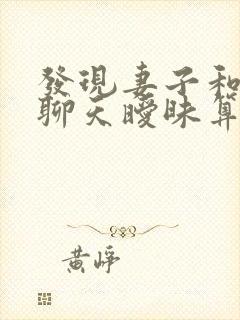 發現妻子和
聊天曖昧算
黃崢